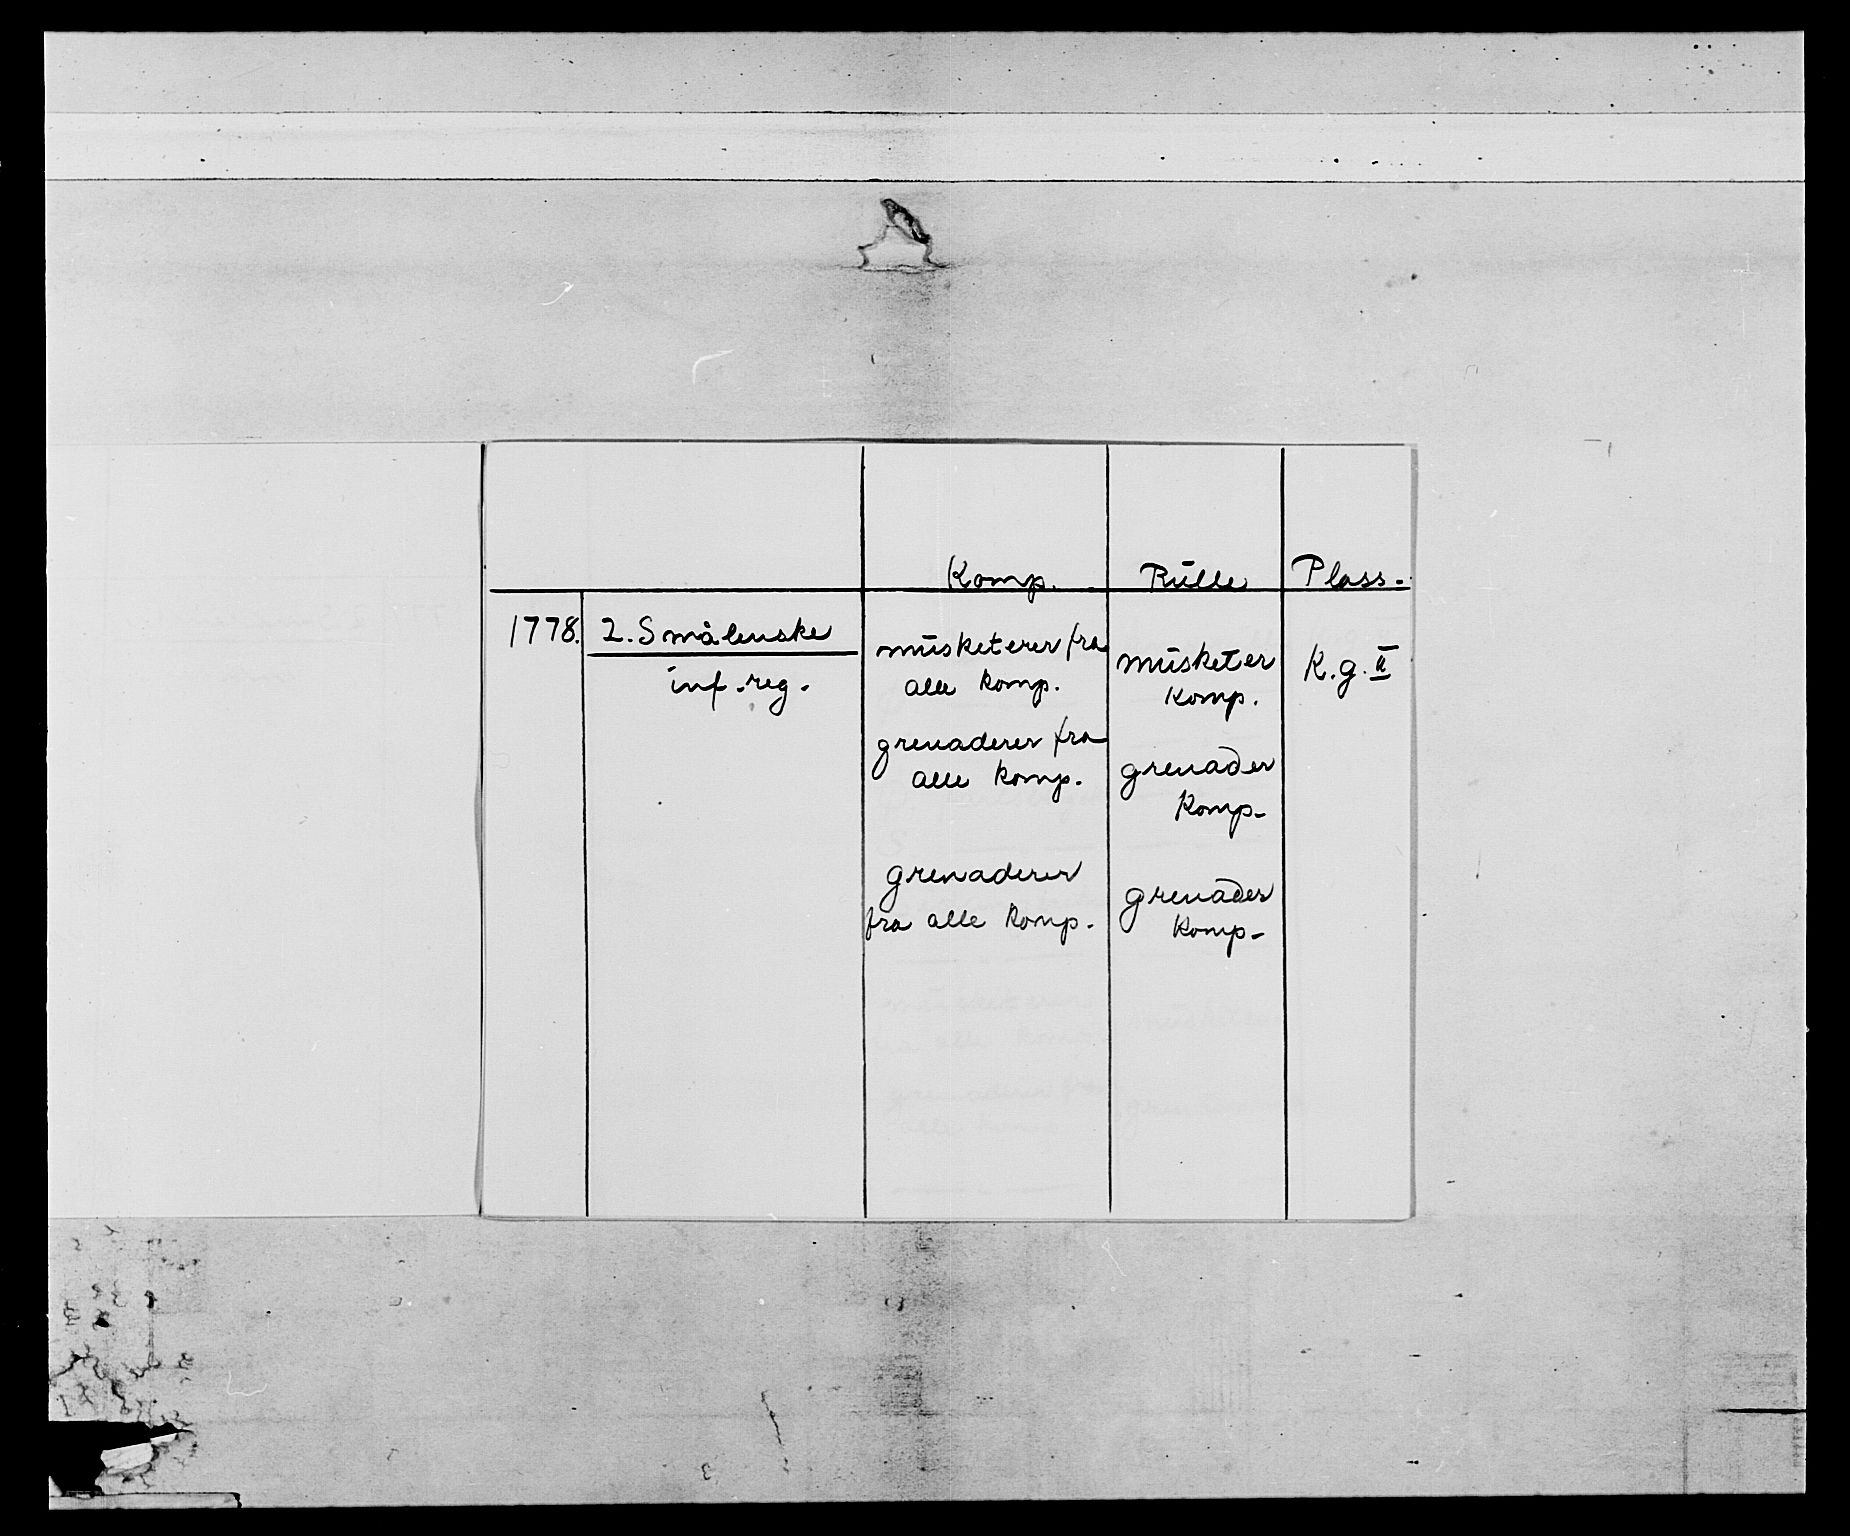 Komp. Rulle Plass.
1778. 2. Smålenske
inf. reg.
musketerer fra
alle komp.
musketer
komp.
K.g. II
grenaderer fra
alle komp.
grenader
komp.
grenaderer
fra alle komp.
grenader
komp.